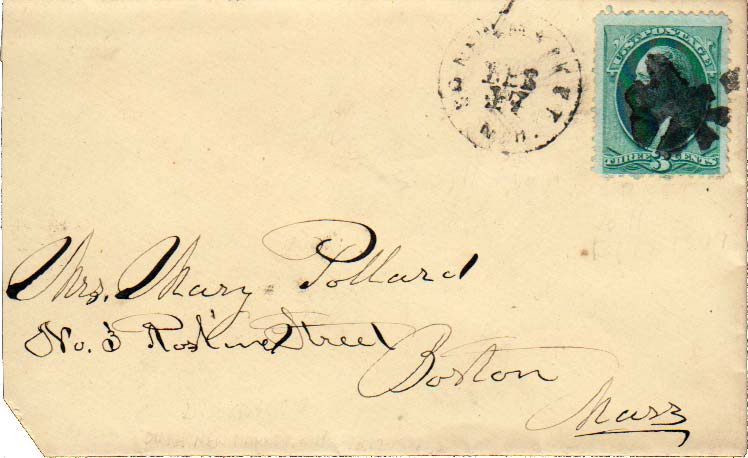 U.S. POSTAGE
THREE 3 CENTS
17
N.H.
Mrs. Mary Pollard
No. 3 Street
Boston
Mass